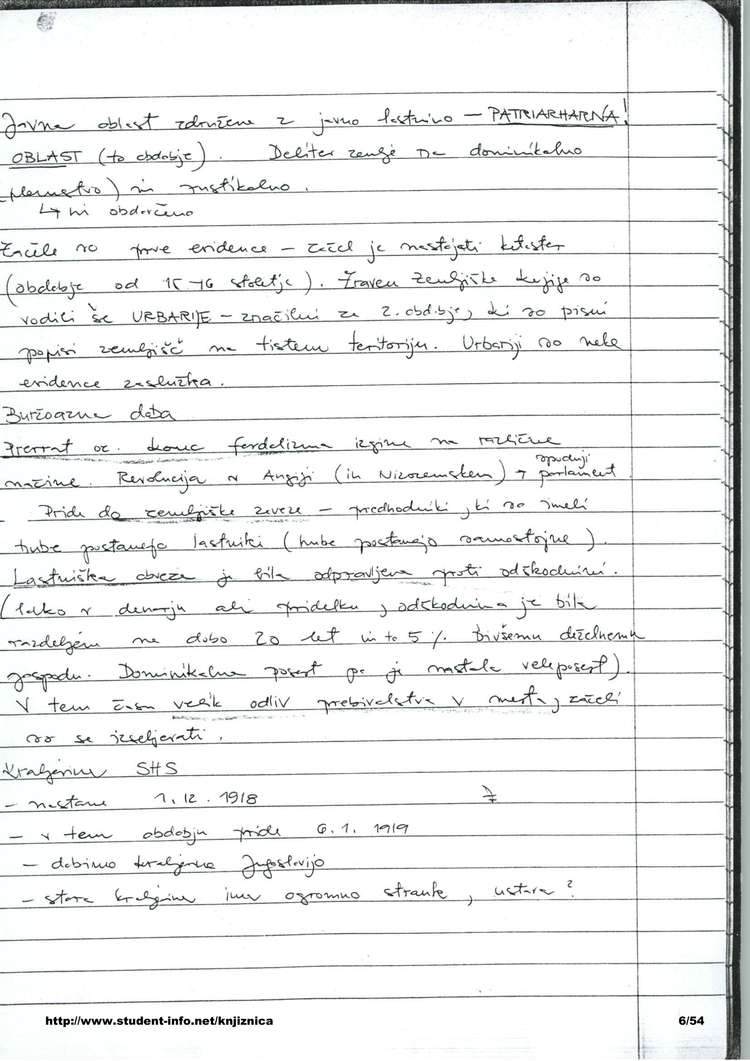 Javna oblast združena z javno lastnino – PATRIARHARNA!
OBLAST (to obdobje). Delitev zemlje na dominikalno
plemstvo) in rustikalno.
↳ ni obdavčeno
Začele so prve evidence – začel je nastajati kataster
(obdobje od 15-16 stoletje). Zraven zemljiške knjige so
vodili še URBARIJE – značilni za 2. obdobje, ki so pisni
popisi zemljišč na tistem teritoriju. Urbariji so neke
evidence zaslužka.
Buržoazna doba
Prevrat oz. konec fevdalizma izgine na različne
načine. Revolucija v Angiji (in Nizozemskem) → spodnji parlament
Pride do zemljiške zaveze – predhodniki, ki so imeli
hube postanejo lastniki (hube postanejo samostojne).
Lastniška obveza je bila odpravljena proti odškodnini.
(lahko v denarju ali pridelku, odškodnina je bila
razdeljena na dobo 20 let in to 5% bivšemu deželnemu
gospodu. Dominikalna posest pa je nastala veleposest).
V tem času velik odliv prebivalstva v mesta, začeli
so se izseljevati.
Kraljevina SHS
– nastane 1.12.1918
– v tem obdobju pride 6.1.1919
– dobimo kraljevino Jugoslavijo
– stara kraljevina ima ogromno strank, ustava?
http://www.student-info.net/knjiznica 6/54